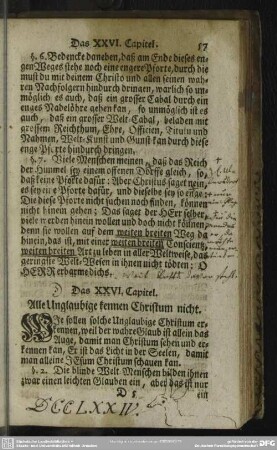 Das XXVI. Capitel.
57
§. 6. Bedencke daneben, daß am Ende dieses en-
gen Weges stehe noch eine engere Pforte, durch die
must du mit deinem Christo und allen seinen wah-
ren Nachfolgern hindurch dringen, warlich so un-
möglich es auch, daß ein grosser Cabal durch ein
enges Nadelöhre gehen kan, so unmöglich ist es
auch, daß ein grosser Welt-Cabal, beladen mit
grossem Reichthum, Ehre, Officien, Tituln und
Nahmen, Welt-Kunst und Gunst kan durch diese
enge Pforte hindurch dringen.
§. 7. Viele Menschen meinen, daß das Reich
der Himmel sey einem offenen Dorffe gleich, so
daß keine Pforte dafür: Aber Christus saget nein,
es sey eine Pforte dafür, und dieselbe sey so enge:
Die diese Pforte nicht suchen noch finden, können
nicht hinein gehen: Das saget der HErr selber,
viele werden hinein wollen und doch nicht können,
denn sie wollen auf dem weiten breiten Weg da
hinein, das ist, mit einer weiten breiten Conscientz,
weiten breiten Art zu leben in aller Weltweise, das
geringste Welt-Wesen in ihnen nicht tödten: O
HERR erbarme dich.
Das XXVI. Capitel.
Alle Unglaubige kennen Christum nicht.
WIe sollen solche Unglaubige Christum er-
kennen, weil der wahre Glaub ist allein das
Auge, damit man Christum sehen und er-
kennen kan, Er ist das Licht in der Seelen, damit
man alleine JEsum Christum schauen kan.
§. 2. Die blinde Welt-Menschen bilden ihnen
zwar einen leichten Glauben ein, aber das ist nur
D 5
ein
DCCLXXIV.